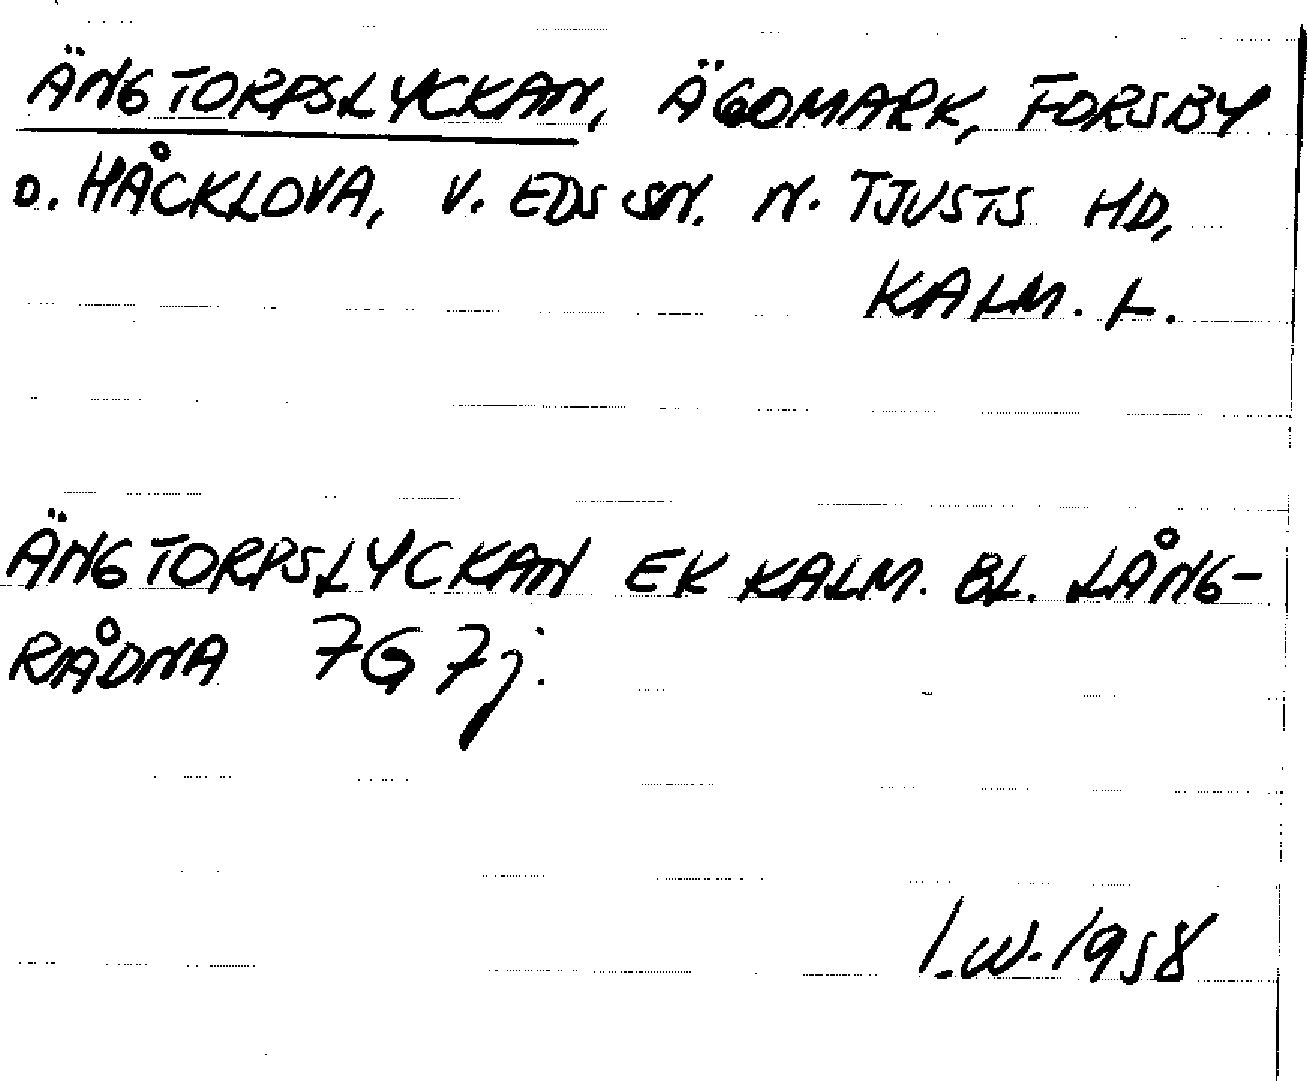 ÄNGTORPSLYCKAN, ÄGOMARK, FORSBY
D. HÅCKLÖVA, V. EDS SN. N. TJUSTS HD,
KALM. L.
ÄNGTORPSLYCKAN EK KALM. BL. LÅNG-
RÅDNA 7G7j.
I.W. 1958